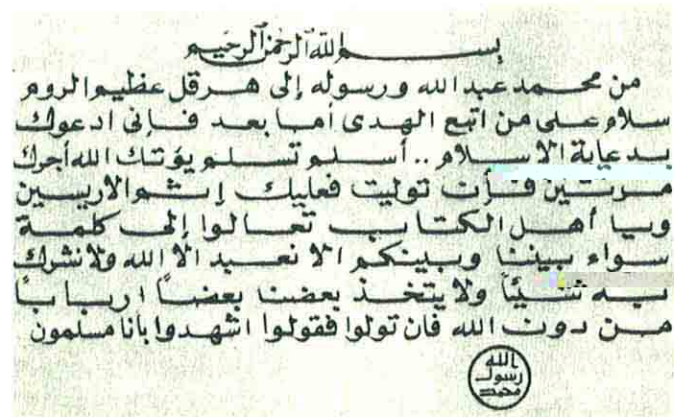 بسم الله الرحمن الرحيم
من محمد عبد الله ورسوله إلى هرقل عظيم الروم
سلام على من اتبع الهدى أما بعد فإنى ادعوك
بدعاية الاسلام .. أسلم تسلم يؤتك الله أجرك
مرتين فإن توليت فعليك إثم الاريسين
ويا أهل الكتاب تعالوا إلى كلمة
سواء بيننا وبينكم الا نعبد الا الله ولا نشرك
به شيئاً ولا يتخذ بعضنا بعضاً ارباباً
من دون الله فان تولوا فقولوا اشهدوا بانا مسلمون
الله
رسول
محمد